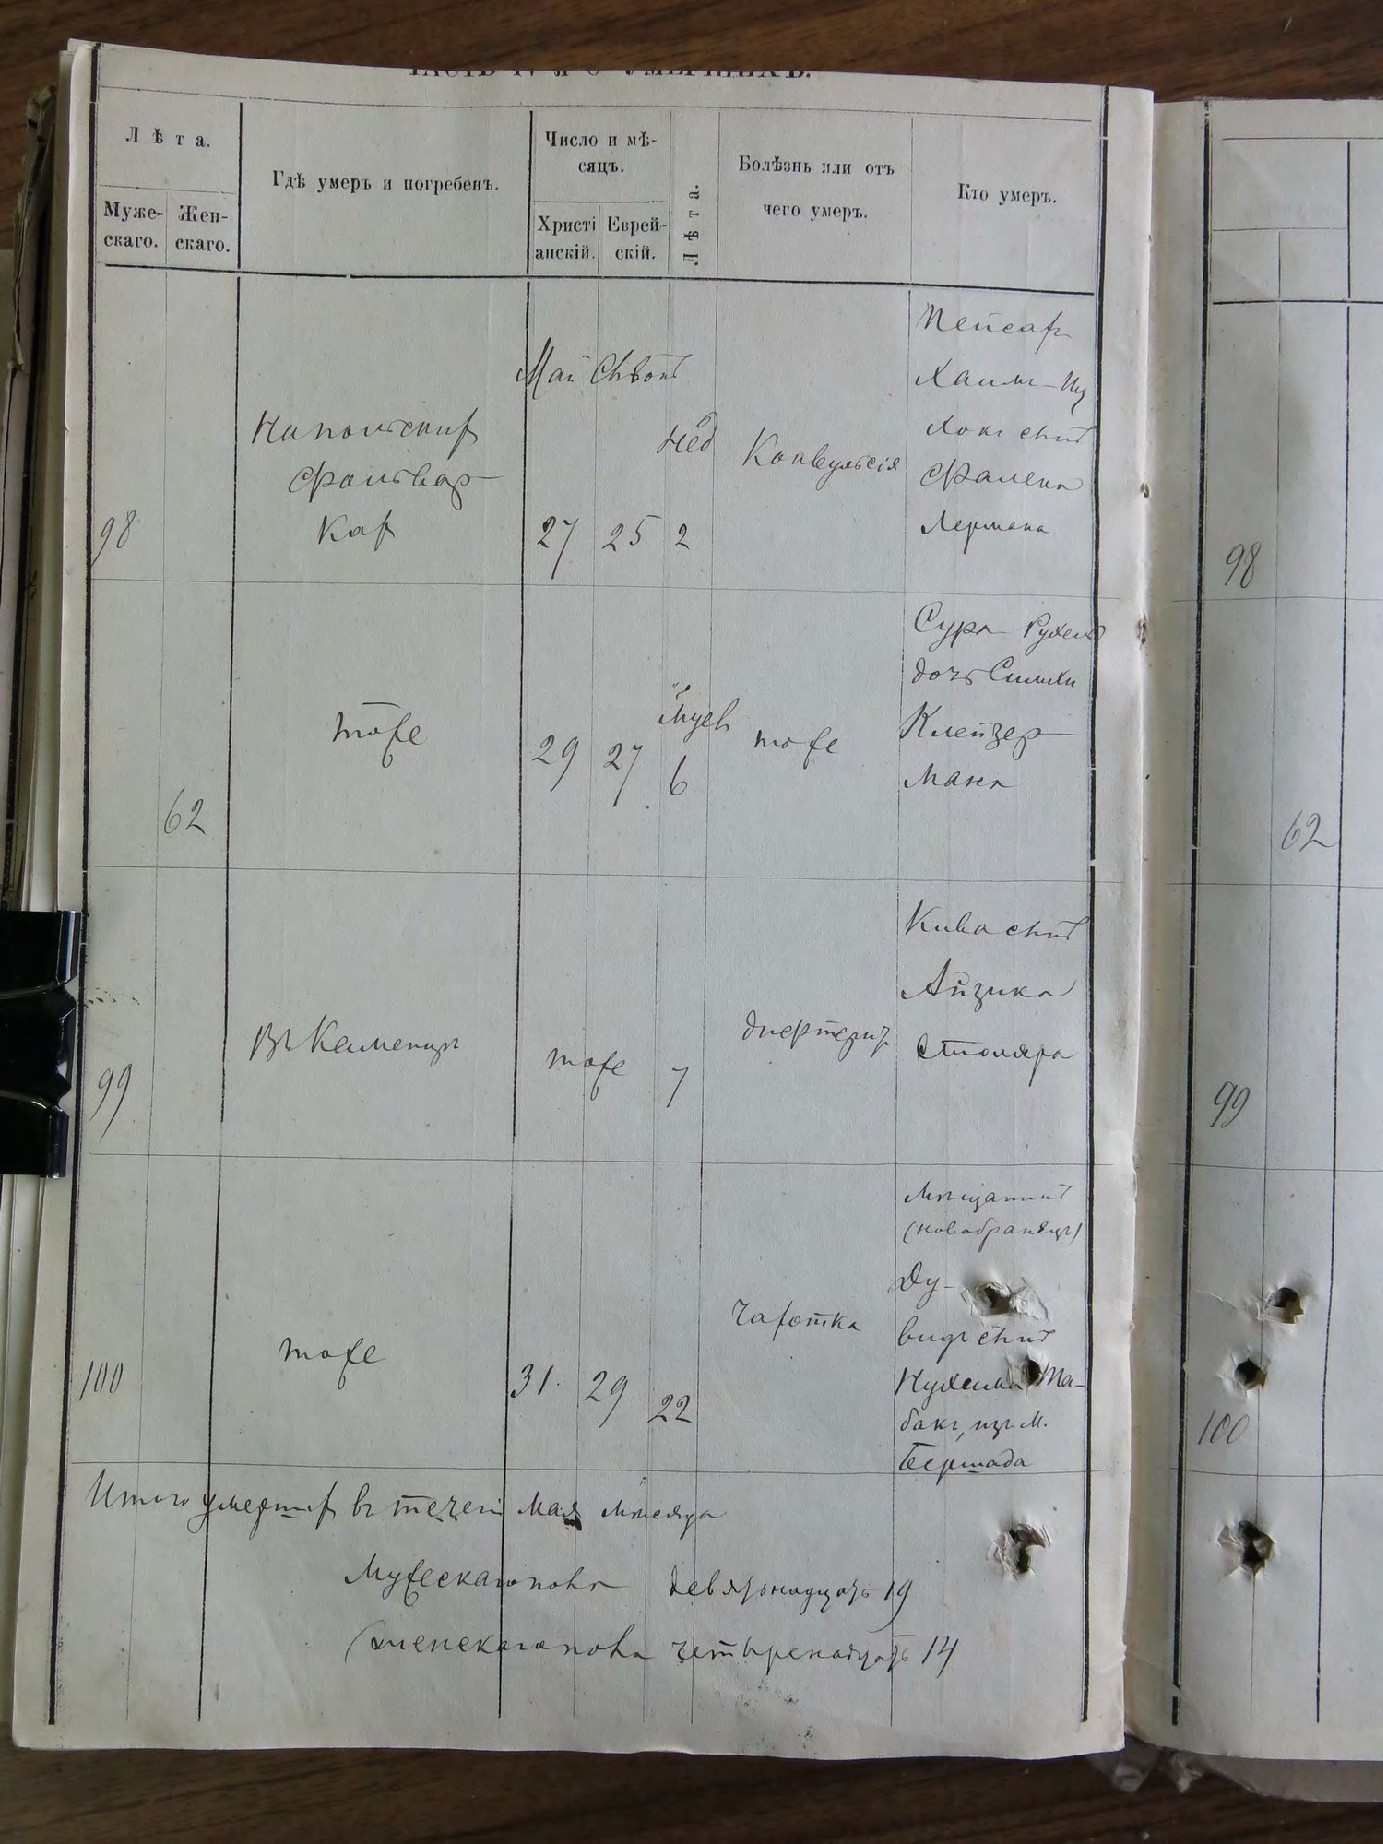 ЧАСТЬ IV-я О УМЕРШИХЪ.
Лѣта.
Муже-
скаго.
Жен-
скаго.
Гдѣ умеръ и погребенъ.
Число и мѣ-
сяцъ.
Христі
анскій.
Еврей-
скій.
Лѣта.
Болѣзнь или отъ
чего умеръ.
Кто умеръ.
98
На польскихъ
фольвар-
кахъ
Май
27
25
нед
2
Конвульсія
Пейсахъ
Хаимъ-Иц
хокъ сынъ
Фалека
Лермана
62
тоже
29
27
6
тоже
Сура Рухель
дочь Симхи
Клейзер
мана
99
Въ Каменцѣ
тоже
7
дифтеритъ
Кива сынъ
Айзика
Столяра
100
тоже
31.
29
22
чахотка
Мѣщанинъ
(новобранецъ)
Ду-
видъ сынъ
Нухима Та-
бакъ, изъ М.
Бершада
Итого умершихъ въ течении Мая мѣсяца
Мужескаго пола девятьнадцать 19
женскаго пола четырнадцать 14
98
62
99
100